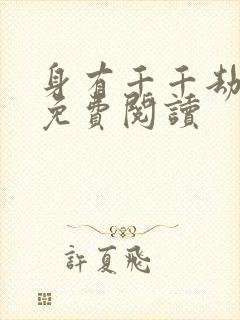 身有千千劫
免費閱讀
許夏飛